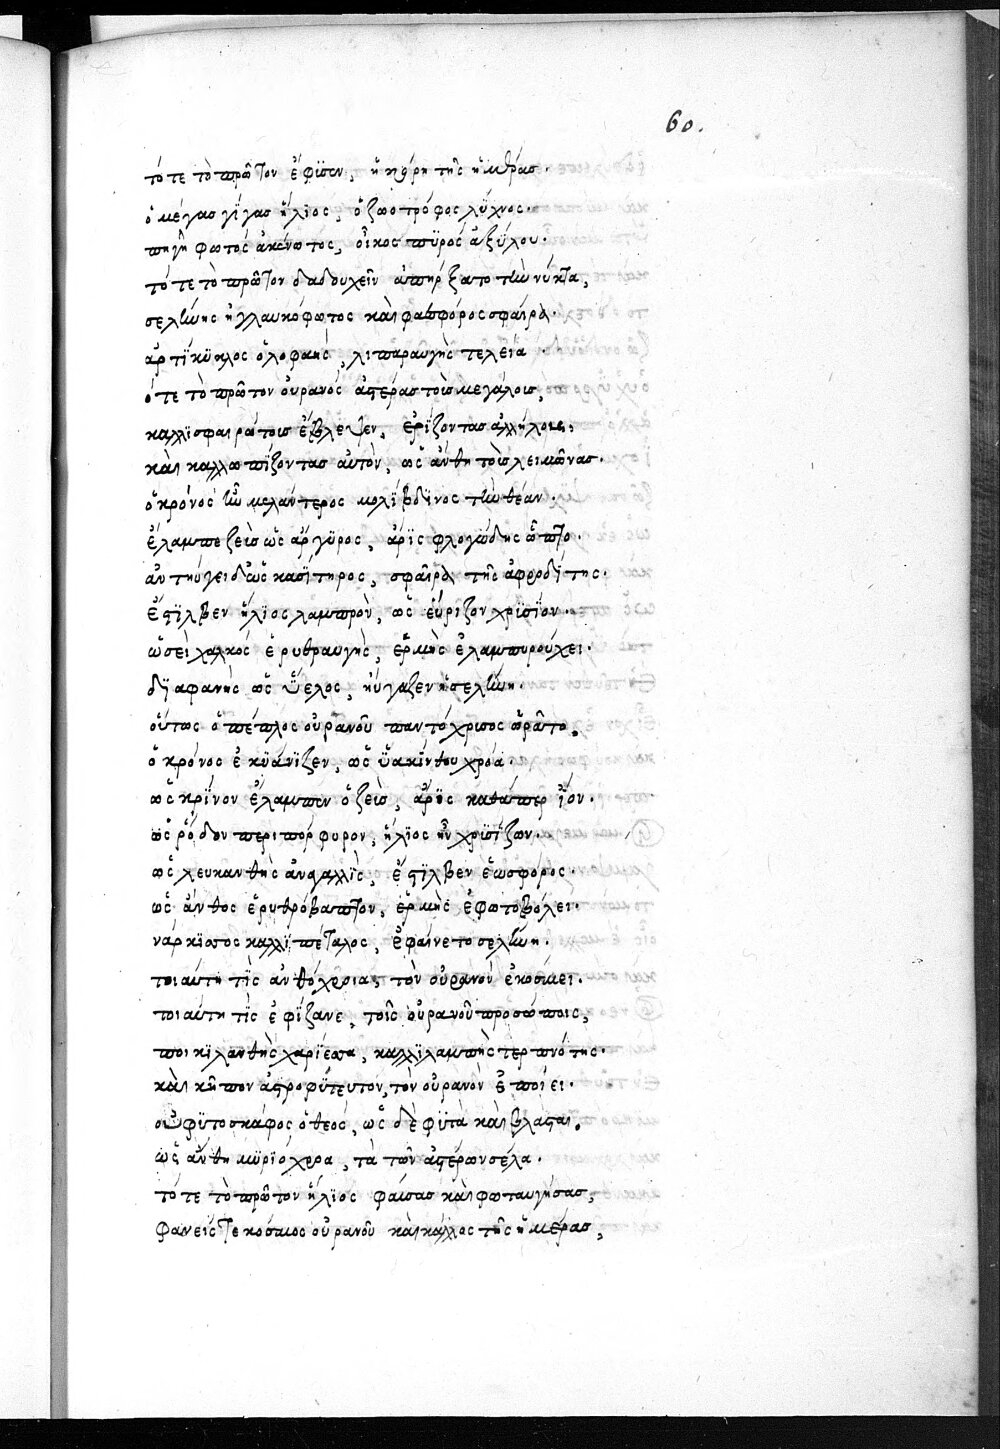 60.
τότε τὸ πρῶτον ἔφϊσεν, ἡ κόρη τῆς ἡμέρας·
ὁ μέγας γίγας ἥλϊος, ὁ ζωοτρόφος λύχνος·
πηγὴ φωτὸς ἀκένωτος, οἶκος πϋρὸς ἀξύλου·
τότε τὸ πρῶτον δᾳδουχεῖν ἀπήρξατο τὴν νύκτα,
σελήνης ἡ γλαυκόφωτος καὶ φαεσφόρος σφαῖρα·
ἀρτϊκϋκλος ὁλοφαὴς, λιπαραυγὴς τελεία·
ότε τὸ πρῶτον οὐρανὸς ἀστέρας τοῖς μεγάλοις,
καλλϊσφαιράτοις ἔβλεψεν, ἐρϊζοντας ἀλλήλοις,
καὶ καλλωπϊζοντας αὐτὸν, ὡς ἄνθη τοῖς λειμῶνας·
ὁ κρόνος ἦν μελάντερος μολϊβδϊνος τὴν θέαν·
ἔλαμπε ζεὺς ὡς ἄργϋρος, ἄρϊς φλογώδης ὤπτο·
ἀντηύγει δ' ὡς κασϊτηρος, σφαῖρα τῆς ἀφροδϊτης·
ἔστϊλβεν ἥλϊος λαμπρὸν, ὡς εὔριζον χρϊσϊον·
ὡσεὶ χαλκὸς ἐρυθραυγὴς, ἑρμῆς ἐλαμπυρούχει·
δϊαφανὴς ὡς ὕελος, ηὔγαζεν ἡ σελήνη·
οὕτως ὁ πέπλος οὐρανοῦ παντόχρισος ὡρᾶτο.
ὁ κρόνος ἐκϋάνϊζεν, ὡς ὑακίνθου χρόα·
ὡς κρϊνον ἔλαμπεν ὁ ζεὺς, ἄρης καθάπερ ἴον·
ὡς ρόδον περιπόρφυρον, ἥλϊος ἦν χρϊσϊζων·
ὡς λευκανθὴς ἀναγαλλὶς, ἔστϊλβεν ἑωσφόρος·
ὡς ἄνθος ἐρυθρόβαπτον, ἑρμῆς ἐφωτοβόλει·
νάρκϊσσος καλλϊπέταλος, ἐφαίνετο σελήνη·
τοιαύτη τϊς ἀνθόχροια, τὸν οὐρανὸν ἐκόσμει·
τοιαύτη τϊς ἐφϊζανε, τοῖς οὐρανοῦ προσώποις,
ποικϊλανθὴς χαρϊεσσα, καλλϊλαμπὴς τερπνότης·
καὶ κῆπον ἀστροφϋτευτον, τὸν οὐρανὸν ἐποίει·
οὗ φϋτοσκάφος ὁ θεός, ὡς δὲ φϋτὰ καὶ βλασται.
ὡς ἄνθη μϋριόχροα, τὰ τῶν ἀστέρων σέλα·
τότε τὸ πρῶτον ἥλϊος φαύσας καὶ φωταυγήσας,
φανεὶς τε κόσμος οὐρανοῦ καὶ κάλλος τῆς ἡμέρας,